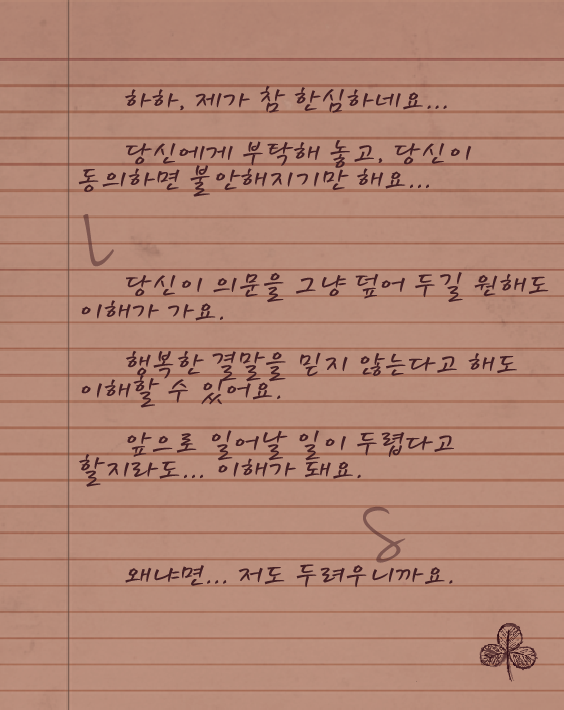 하하, 제가 참 한심하네요...
당신에게 부탁해 놓고, 당신이
동의하면 불안해지기만 해요...
당신이 의문을 그냥 덮어 두길 원해도
이해가 가요.
행복한 결말을 믿지 않는다고 해도
이해할 수 있어요.
앞으로 일어날 일이 두렵다고
할지라도... 이해가 돼요.
왜냐면... 저도 두려우니까요.